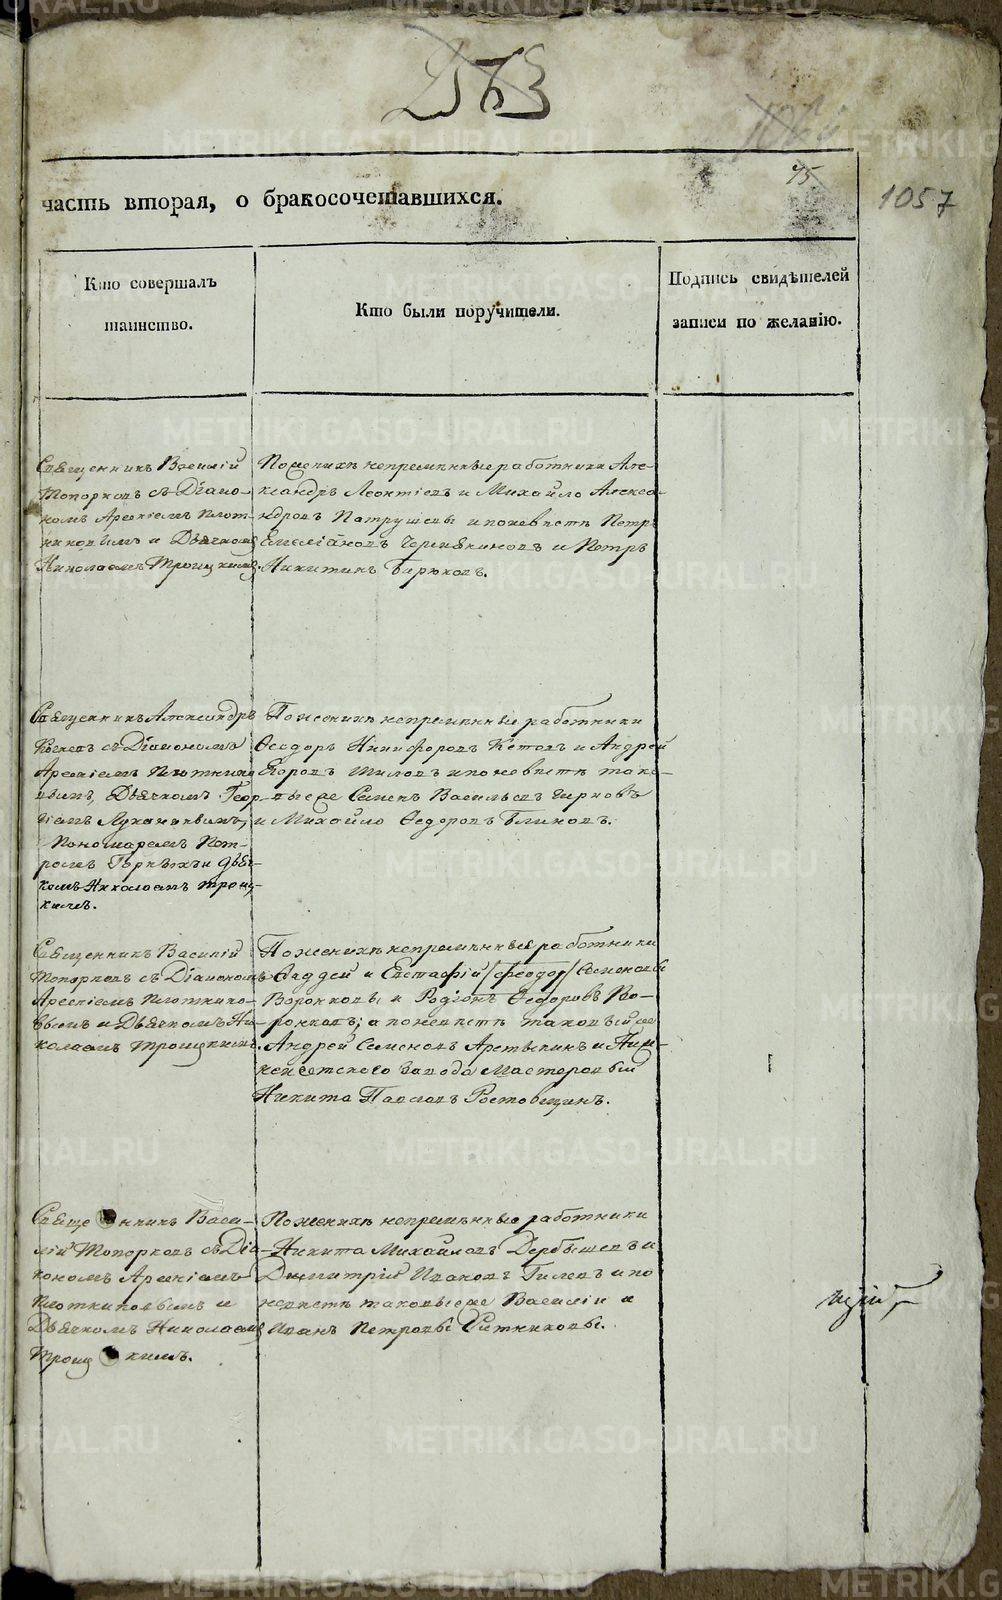 253
45
1057
часть вторая, о бракосочетавшихся.
Кто совершалъ
таинство.
Кто были поручители.
Подпись свидѣтелей
записи по желанію.
Священникъ Василій
Топорковъ съ Діако-
номъ Арсеніемъ Плот-
никовымъ и Дьячкомъ
Николаемъ Троицкимъ.
По женихѣ непремѣнные работники Але-
ксандръ Леонтіевъ и Михайло Алекса-
ндровъ Патрушевы и по невѣстѣ Петръ
Емеліановъ и Петръ
Никитинъ Бирюковъ.
Священникъ Александръ
съ Діакономъ
Арсеніемъ Плотнико
вымъ, Дьячкомъ Геор-
гіемъ
Пономаремъ Пет-
ромъ и дьяч-
комъ Николаемъ Троиц-
кимъ.
По женихѣ непремѣнные работники
Ѳеодоръ Никифоровъ Кетовъ и Андрей
Егоровъ Шиловъ и по невѣстѣ тако-
вые же Семенъ Васильевъ
и Михайло Ѳедоровъ Блиновъ.
Священникъ Василій
Топорковъ съ Діакономъ
Арсеніемъ Плотнико-
вымъ и Дьячкомъ Ни-
колаемъ Троицкимъ.
По женихѣ непремѣнные работники
Ѳаддей и Евстафій /Ѳеодор/ Семеновы
Воронковы и Родіонъ Ѳедоровъ Во-
ронковъ; а по невѣстѣ таковый же
Андрей Семеновъ и Ниж-
неисетскаго завода Мастеровый
Никита Павловъ Ростовщинъ.
Священникъ Васи-
лій Топорковъ съ Діа
кономъ Арсеніемъ
Плотниковымъ и
Дьячкомъ Николаемъ
Троицкимъ.
По женихѣ непремѣнные работники
Никита Михайловъ Дербышевъ и
Димитрій Ивановъ Гилевъ и по
невѣстѣ таковые же Василій и
Иванъ Петровы Ситниковы.